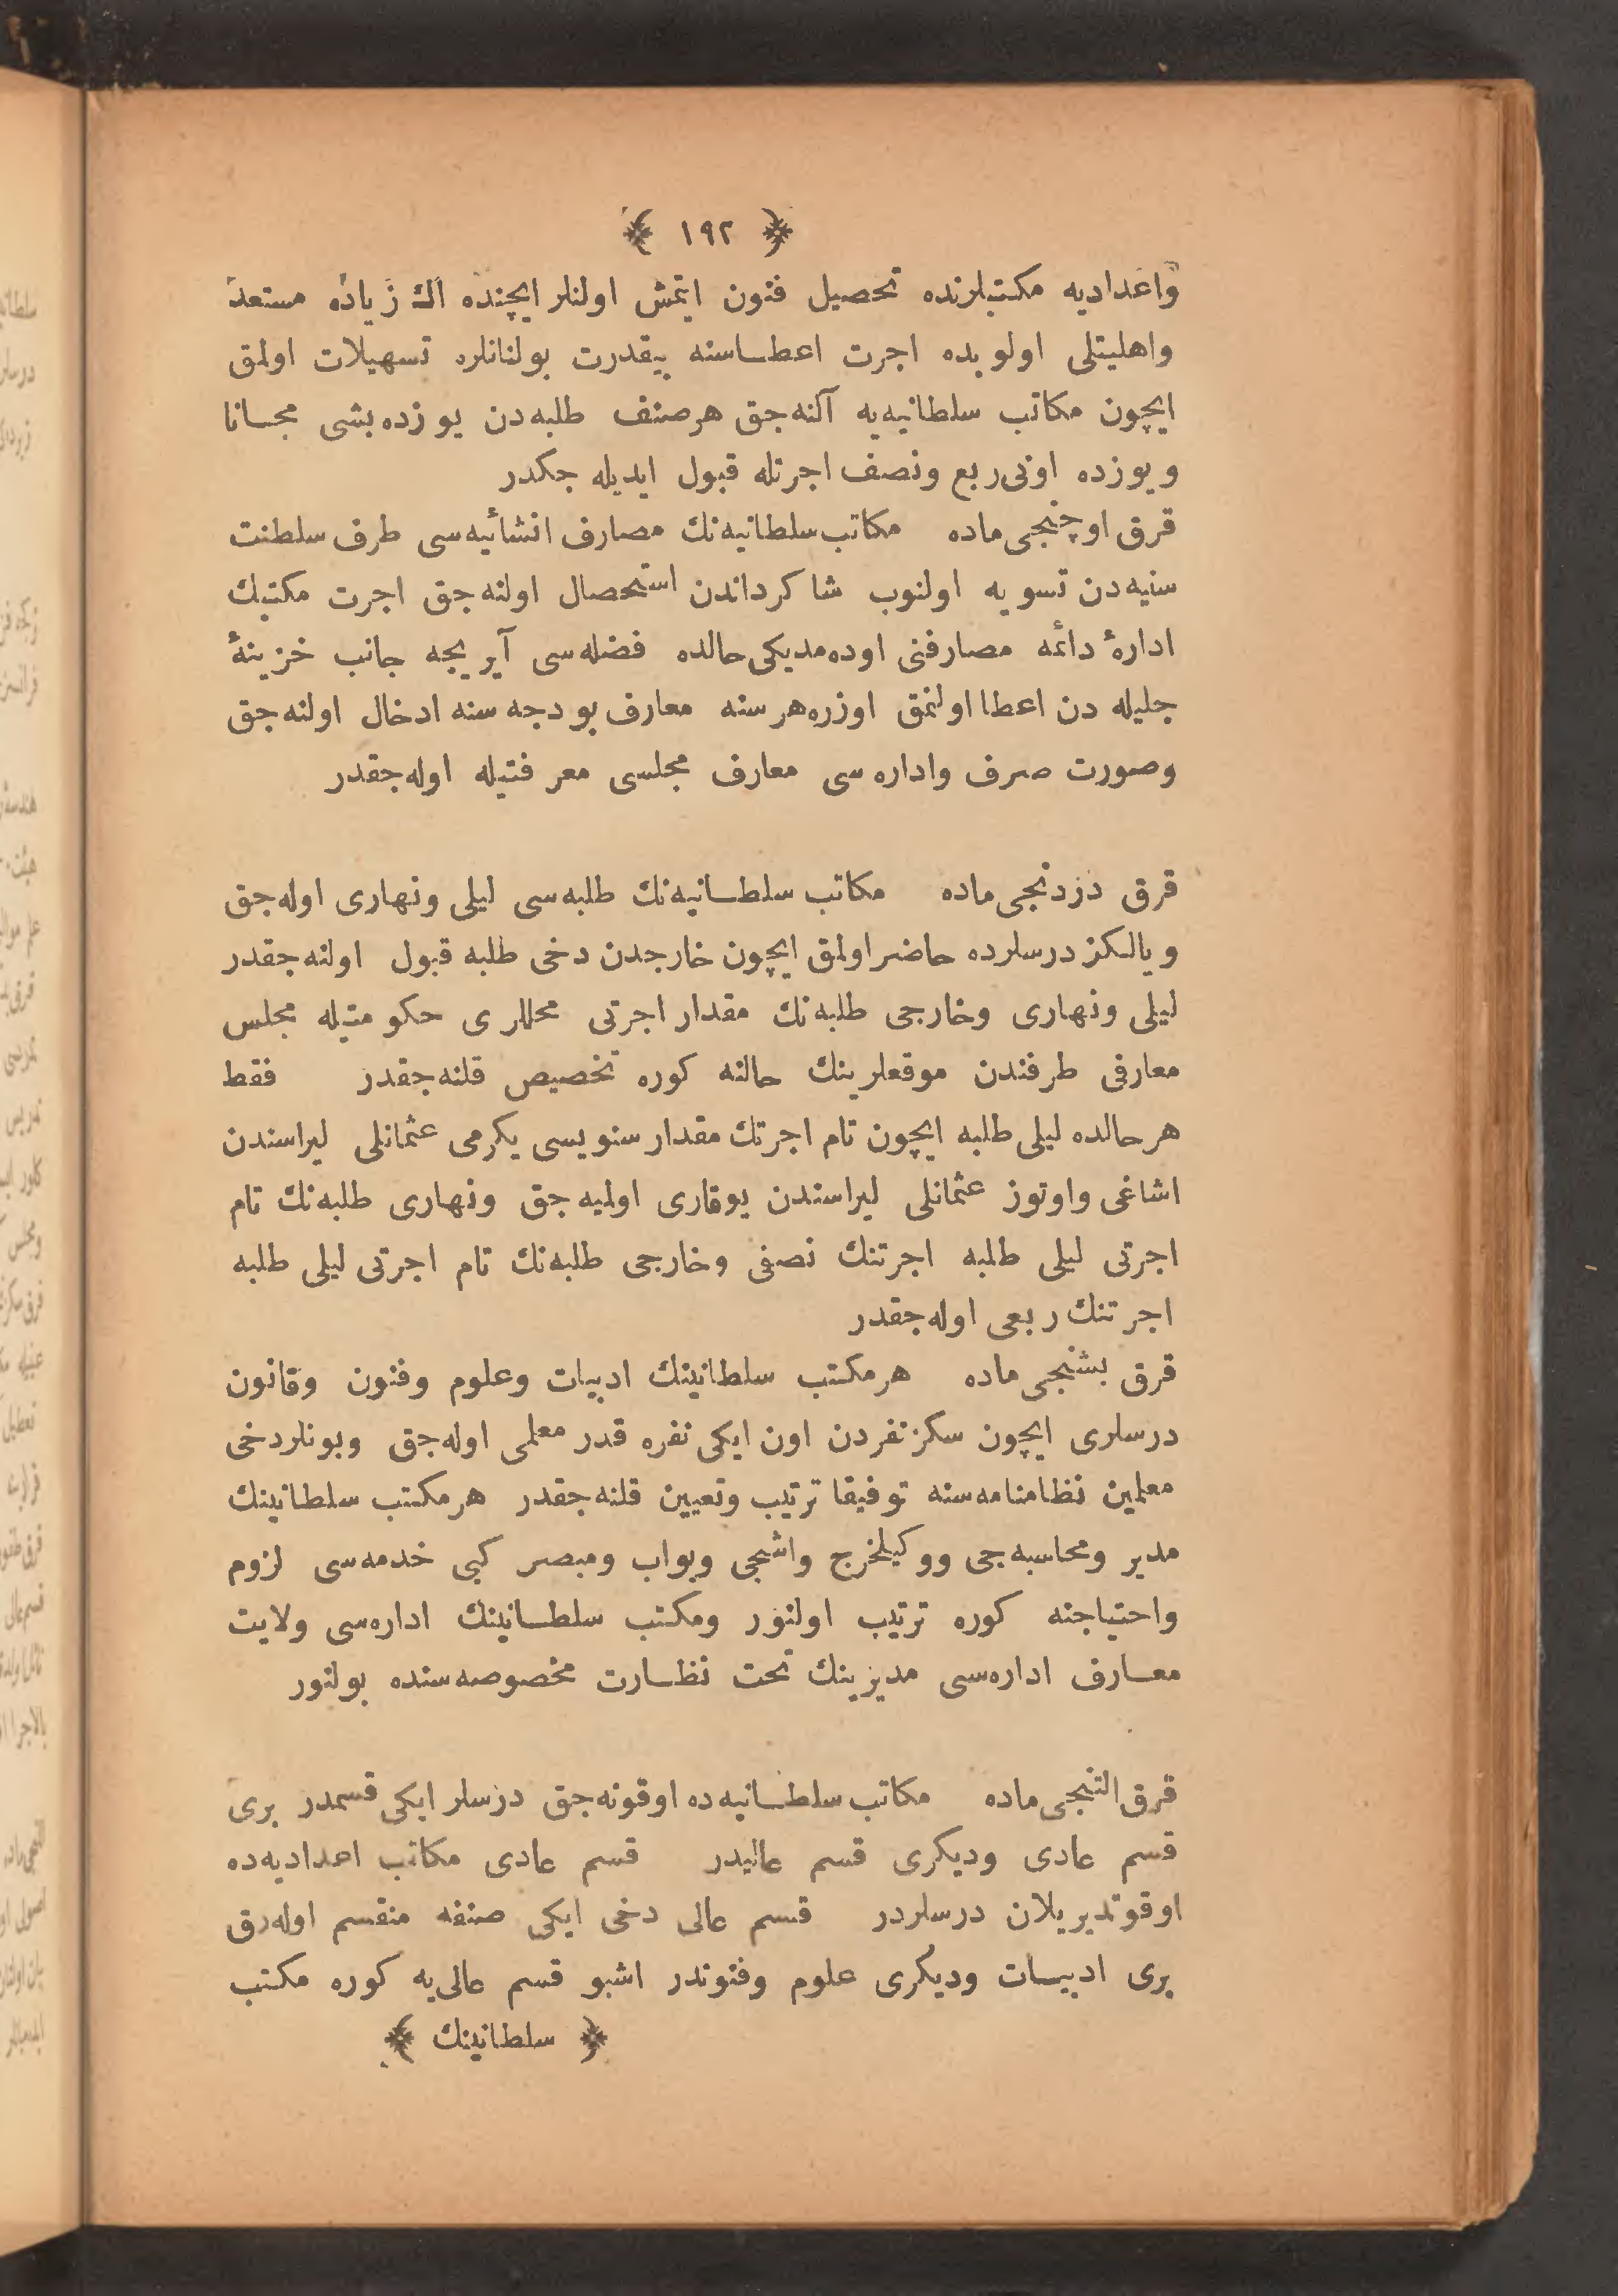 ﴿ ١٩٢ ﴾
واعداديه مكتبلرنده تحصيل فنون ايتمش اولنلر ايچنده اك زياده مستعد
واهليتلى اولوبده اجرت اعطاسنه بيقدرت بولنانلره تسهيلات اولمق
ايچون مكاتب سلطانيه‌يه آلنه‌جق هرصنف طلبه‌دن يوزده‌بشى مجانا
ويوزده اونى‌ربع ونصف اجرتله قبول ايديله جكدر
قرق اوچنجى‌ماده مكاتب‌سلطانيه‌نك مصارف انشائيه‌سى طرف سلطنت
سنيه‌دن تسويه اولنوب شاكرداندن استحصال اولنه‌جق اجرت مكتبك
ادارۀ دائمه مصارفنى اوده‌مديكى‌حالده فضله‌سى آيريجه جانب خزينۀ
جليله دن اعطا اولنمق اوزره‌هرسنه معارف بودجه سنه ادخال اولنه‌جق
وصورت صرف واداره‌سى معارف مجلسى معرفتيله اوله‌جقدر
قرق دردنجى‌ماده مكاتب سلطانيه‌نك طلبه‌سى ليلى ونهارى اوله‌جق
ويالكز درسلرده حاضر اولمق ايچون خارجدن دخى طلبه قبول اولنه‌جقدر
ليلى ونهارى وخارجى طلبه‌نك مقدار اجرتى محللرى حكومتيله مجلس
معارفى طرفندن موقعلرينك حالنه كوره تخصيص قلنه‌جقدر فقط
هرحالده ليلى طلبه ايچون تام اجرتك مقدار سنويسى يكرمى عثمانلى ليراسندن
اشاغى واوتوز عثمانلى ليراسندن يوقارى اولميه‌جق ونهارى طلبه‌نك تام
اجرتى ليلى طلبه اجرتنك نصفى وخارجى طلبه‌نك تام اجرتى ليلى طلبه
اجرتنك ربعى اوله‌جقدر
قرق بشنجى ماده هرمكتب سلطانينك ادبيات وعلوم وفنون وقانون
درسلرى ايچون سكزنفردن اون ايكى نفره قدر معلمى اوله‌جق وبونلردخى
معلمين نظامنامه‌سنه توفيقا ترتيب وتعيين قلنه‌جقدر هرمكتب سلطانينك
مدير ومحاسبه‌جى ووكيلخرج واشجى وبواب ومبصر كبى خدمه‌سى لزوم
واحتياجنه كوره ترتيب اولنور ومكتب سلطانينك اداره‌سى ولايت
معارف اداره‌سى مديرينك تحت نظارت مخصوصه‌سنده بولنور
قرق‌التنجى‌ماده مكاتب‌سلطانيه‌ده اوقونه‌جق درسلر ايكى قسمدر برى
قسم عادى وديكرى قسم عاليدر قسم عادى مكاتب اعداديه‌ده
اوقوتديريلان درسلردر قسم عالى دخى ايكى صنفه منقسم اوله‌رق
برى ادبيات وديكرى علوم وفنوندر اشبو قسم عالى‌يه كوره مكتب
﴿ سلطانينك ﴾